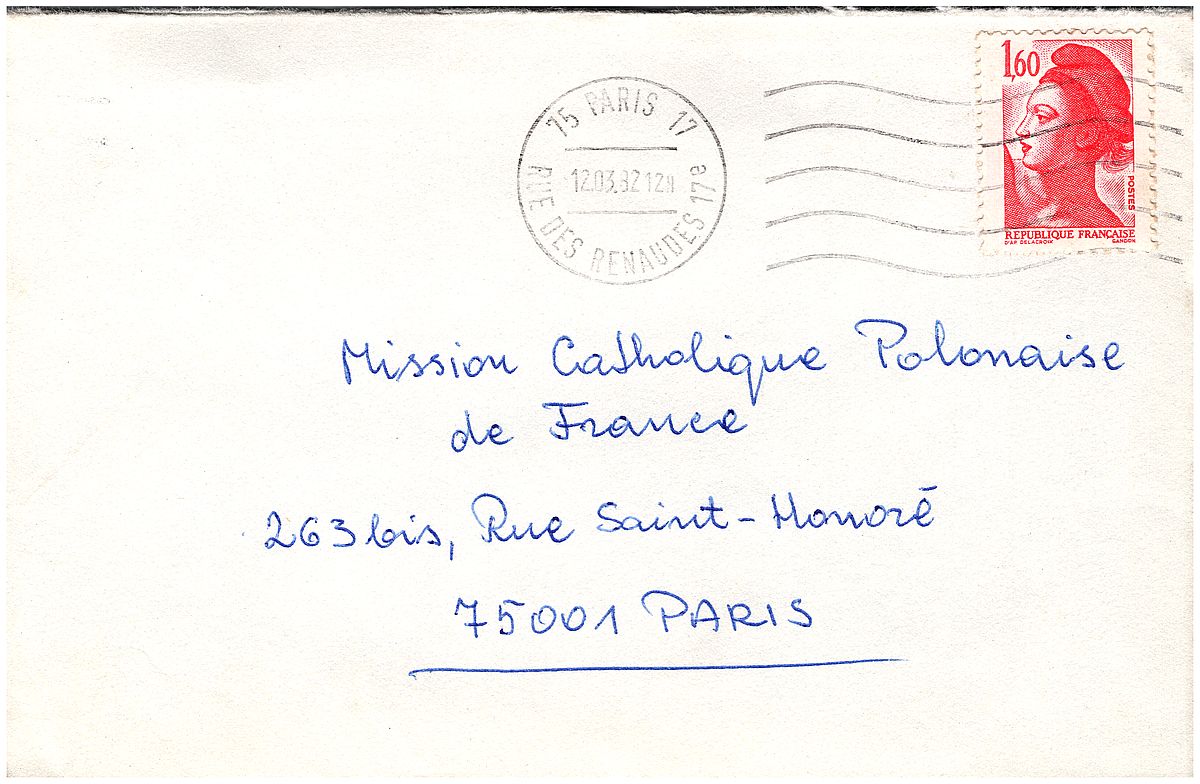 1,60
POSTES
REPUBLIQUE FRANÇAISE
D'AP. DELACROIX GANDON
75 PARIS 17
12.03.82 12H
RUE DES RENAUDES 17e
Mission Catholique Polonaise
de France
263 bis, Rue Saint-Honoré
75001 PARIS